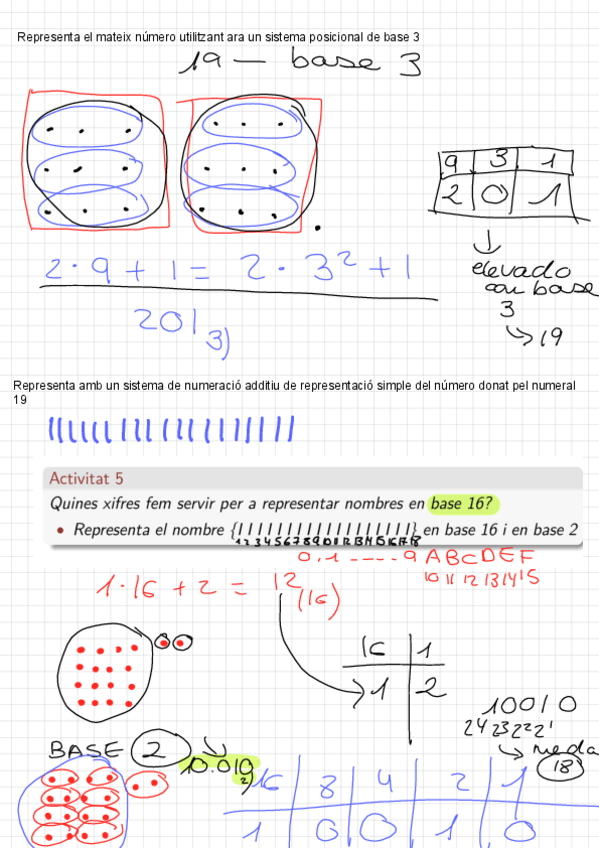 Representa el mateix número utilitzant ara un sistema posicional de base 3
19 — base 3
9 3 1
2 0 1
↓
elevado
con base
3
↳ 19
2 · 9 + 1 = 2 · 3² + 1
201 3)
Representa amb un sistema de numeració additiu de representació simple del número donat pel numeral
19
Activitat 5
Quines xifres fem servir per a representar nombres en base 16?
• Representa el nombre {||||||||||||||||||} en base 16 i en base 2
1 2 3 4 5 6 7 8 9 10 11 12 13 14 15 16 17 18
0, 1 ---- 9 A B C D E F
10 11 12 13 14 15
1 · 16 + 2 = 12 (16)
16 1
1 2
10010
BASE 2
10.010 2)
18
16 8 4 2 1
1 0 0 1 0